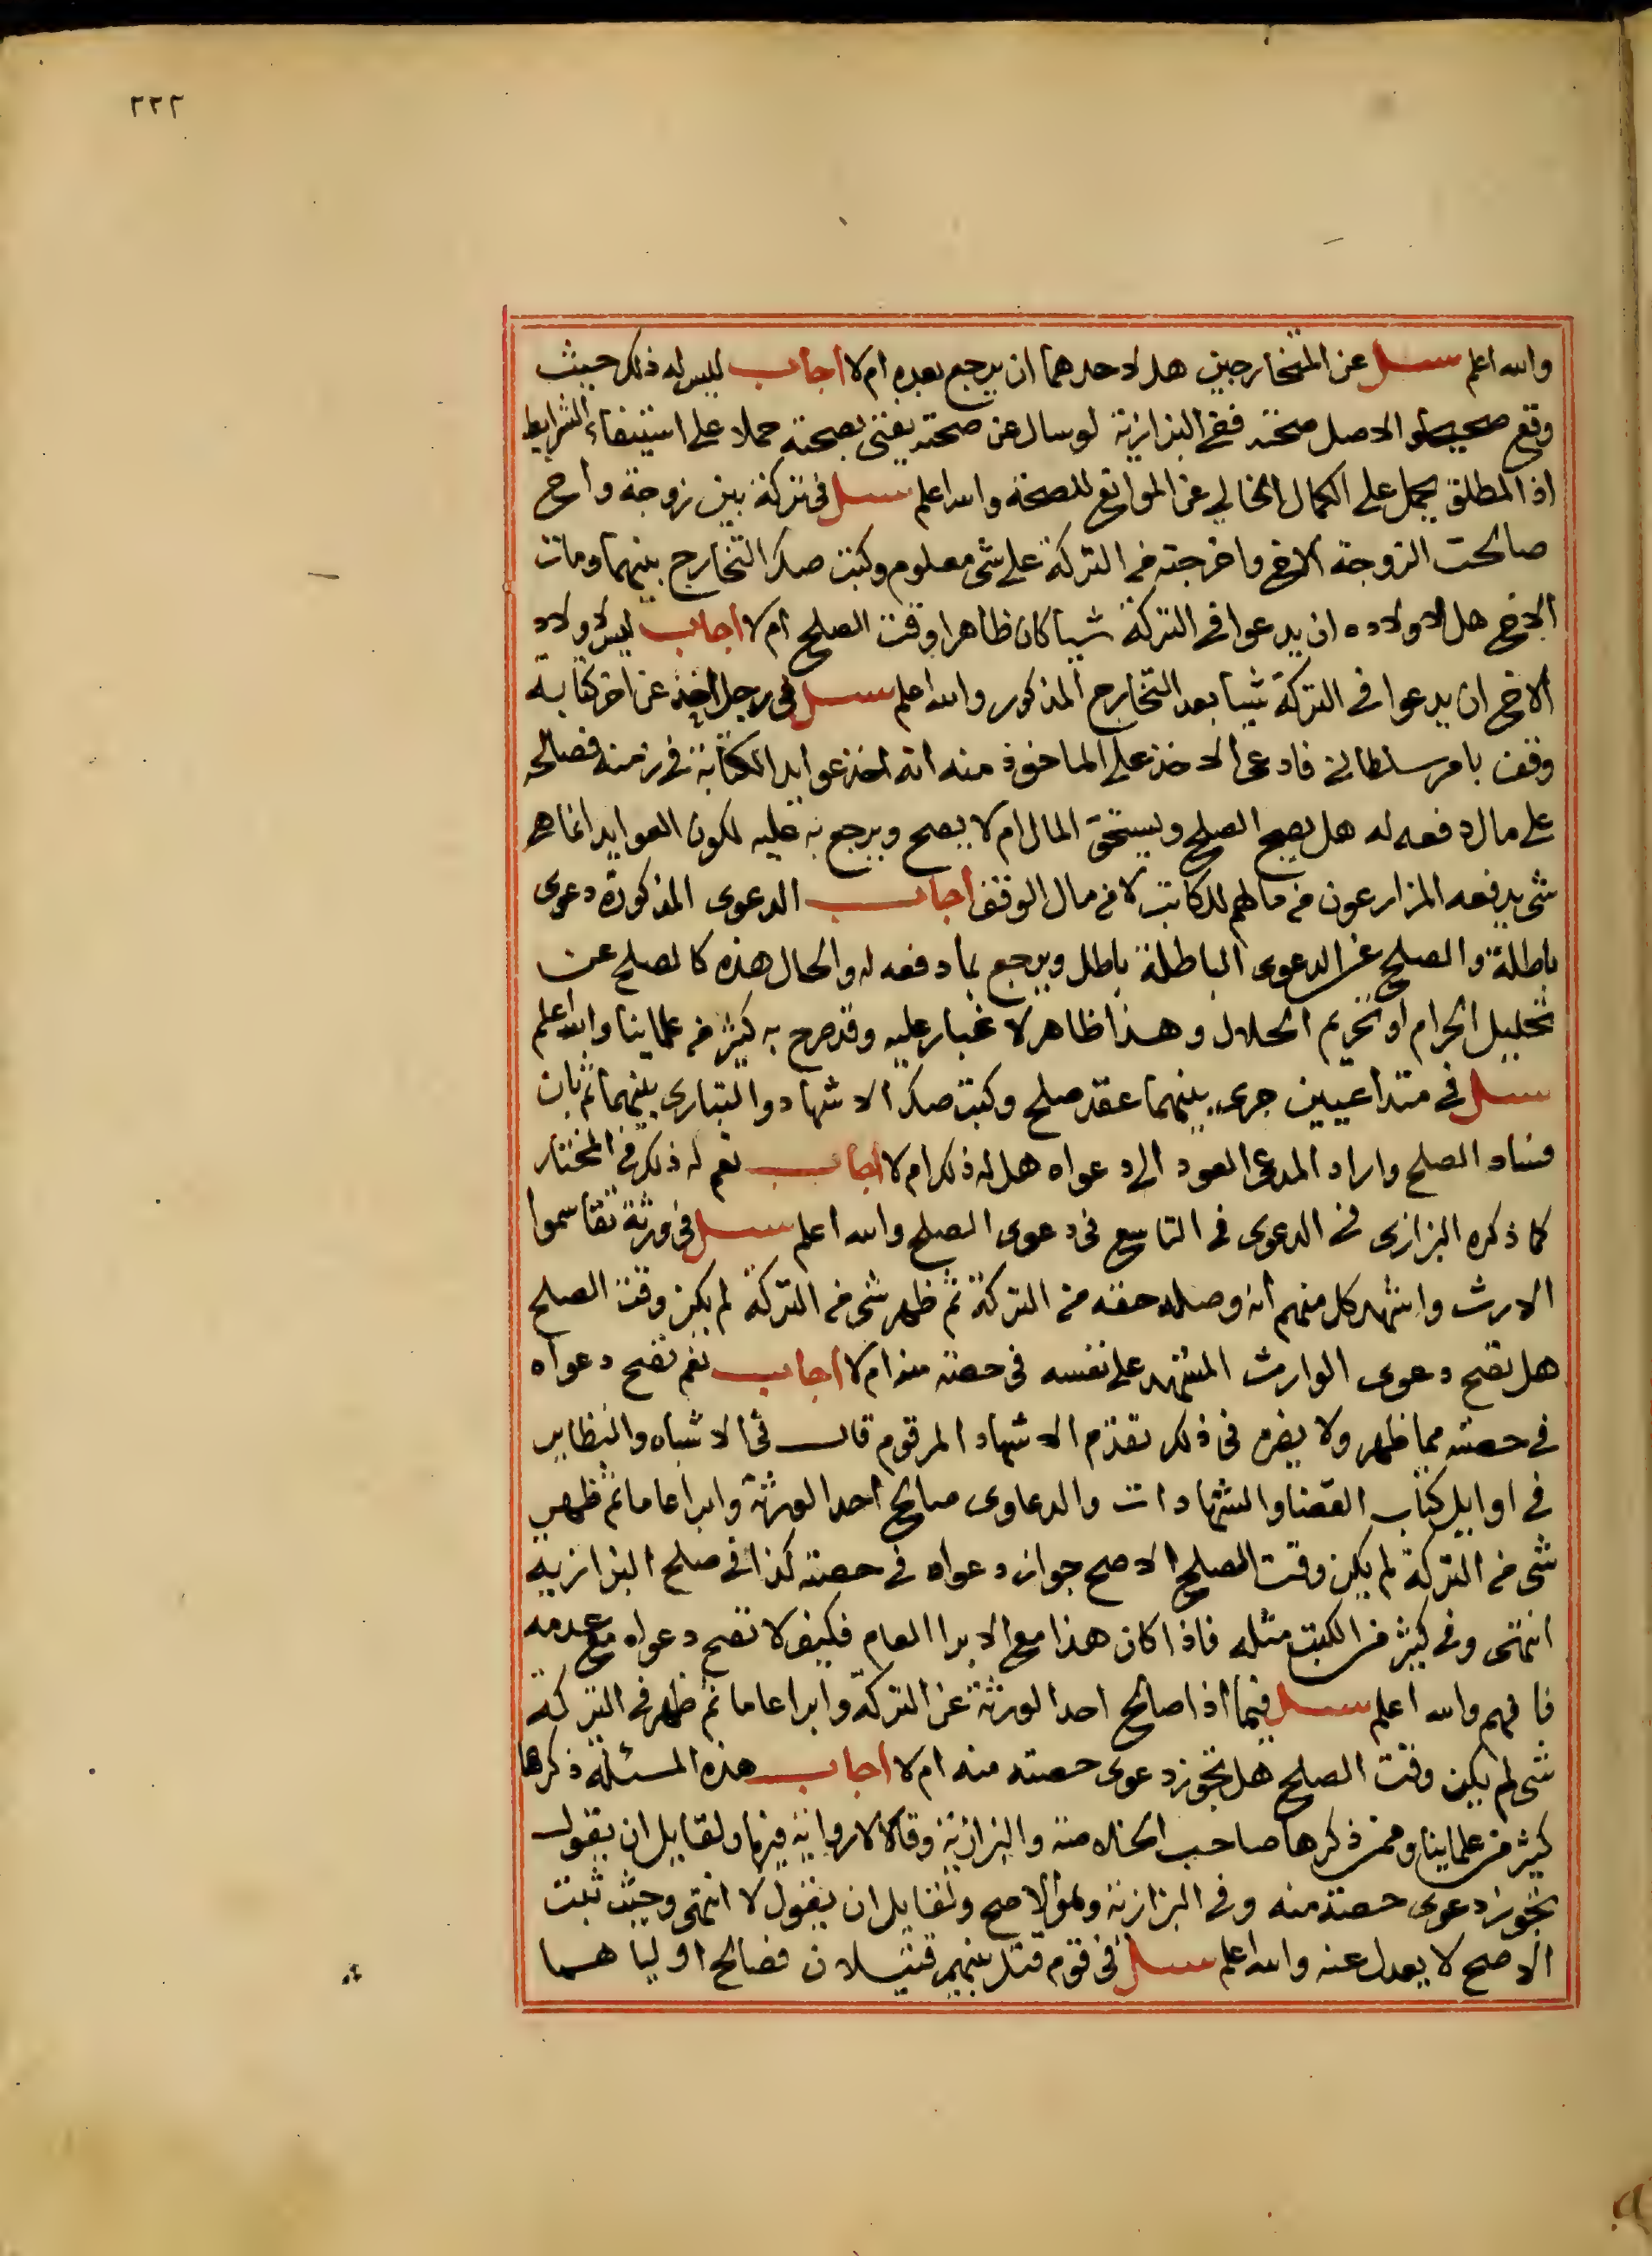 ٢٢٢
والله اعلم سئل عن المتخارجين هل لاحدهما ان يرجع بعده ام لا اجاب ليس له ذلك حيث
وقع صحيحا والاصل صحته ففي البزازية لو سال عن صحته يفتى بصحته حملا على استيفاء الشرايط
اذ المطلق يحمل على الكمال الخالي عن الموانع للصحة والله اعلم سئل في تركة بين زوجة واخ
صالحت الزوجة الاخ واخرجته من التركة على شى معلوم وكتب صك التخارج بينهما ومات
الاخ هل لاولاده ان يدعوا في التركة شيا كان ظاهرا وقت الصلح ام لا اجاب ليس لاولاد
الاخ ان يدعوا في التركة شيا بعد التخارج المذكور والله اعلم سئل في رجل اخذ عن اخر كتابة
وقف بامر سلطاني فادعى الاخذ على الماخوذ منه انه اخذ عوايد الكتابة في زمنه فصالحه
على مال دفعه له هل يصح الصلح ويستحق المال ام لا يصح ويرجع به عليه لكون العوايد انما هي
شى يدفعه المزارعون من مالهم للكاتب لا من مال الوقف اجاب الدعوى المذكورة دعوى
باطلة والصلح عن الدعوى الباطلة باطل ويرجع بما دفعه له والحال هذه كالصلح عن
تحليل الحرام او تحريم الحلال وهذا ظاهر لا غبار عليه وقد صرح به كثير من علماينا والله اعلم
سئل في متداعيين جرى بينهما عقد صلح وكتب صك الاشهاد والتبارى بينهما ثم بان
فساد الصلح واراد المدعى العود الى دعواه هل له ذلك ام لا اجاب نعم له ذلك في المختار
كما ذكره البزازى في الدعوى في التاسع في دعوى الصلح والله اعلم سئل في ورثة تقاسموا
الارث واشهد كل منهم انه وصله حقه من التركة ثم ظهر شى من التركة لم يكن وقت الصلح
هل تصح دعوى الوارث المشهد على نفسه في حصته منه ام لا اجاب نعم تصح دعواه
في حصته مما ظهر ولا يضره في ذلك تقدم الاشهاد المرقوم قال في الاشباه والنظاير
في اوايل كتاب القضا والشهادات والدعاوى صالح احد الورثة وابرا عاما ثم ظهر
شى من التركة لم يكن وقت الصلح الاصح جواز دعواه في حصته كذا في صلح البزازية
انتهى وفي كثير من الكتب مثله فاذا كان هذا مع الابرا العام فكيف لا تصح دعواه مع عدمه
فافهم والله اعلم سئل فيما اذا صالح احد الورثة عن التركة وابرا عاما ثم ظهر في التركة
شى لم يكن وقت الصلح هل تجوز دعوى حصته منه ام لا اجاب هذه المسئلة ذكرها
كثير من علماينا وممن ذكرها صاحب الخلاصة والبزازية وقالا لا رواية فيها ولقايل ان يقول
تجوز دعوى حصته منه وفي البزازية وهو الاصح ولقايل ان يقول لا انتهى وحيث ثبت
الاصح لا يعدل عنه والله اعلم سئل في قوم قتل بينهم قتيلان فصالح اولياهما